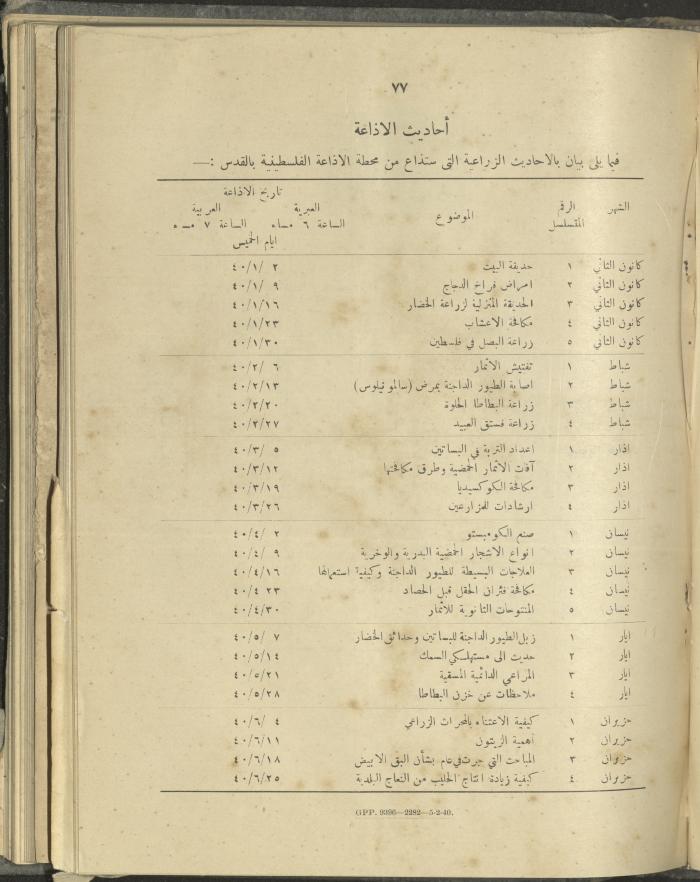 ٧٧
أحاديث الاذاعة
فيما يلى بيان بالاحاديث الزراعية التى ستذاع من محطة الاذاعة الفلسطينية بالقدس :—
تاريخ الاذاعة
الشهر الرقم المتسلسل الموضوع العبرية العربية
الساعة ٦ مساء الساعة ٧ مساء
ايام الخميس
كانون الثاني ١ حديقة البيت ٤٠/١/ ٢
كانون الثاني ٢ امراض فراخ الدجاج ٤٠/١/ ٩
كانون الثاني ٣ الحديقة المنزلية لزراعة الخضار ٤٠/١/١٦
كانون الثاني ٤ مكافحة الاعشاب ٤٠/١/٢٣
كانون الثاني ٥ زراعة البصل في فلسطين ٤٠/١/٣٠
شباط ١ تفتيش الاثمار ٤٠/٢/ ٦
شباط ٢ اصابة الطيور الداجنة بمرض (سالمونيلوس) ٤٠/٢/١٣
شباط ٣ زراعة البطاطا الحلوة ٤٠/٢/٢٠
شباط ٤ زراعة فستق العبيد ٤٠/٢/٢٧
اذار ١ اعداد التربة في البساتين ٤٠/٣/ ٥
اذار ٢ آفات الاثمار الحمضية وطرق مكافحتها ٤٠/٣/١٢
اذار ٣ مكافحة الكوكسيديا ٤٠/٣/١٩
اذار ٤ ارشادات للمزارعين ٤٠/٣/٢٦
نيسان ١ صنع الكومبستو ٤٠/٤/ ٢
نيسان ٢ انواع الاشجار الحمضية البدرية والوخرية ٤٠/٤/ ٩
نيسان ٣ العلاجات البسيطة للطيور الداجنة وكيفية استعمالها ٤٠/٤/١٦
نيسان ٤ مكافحة فئران الحقل قبل الحصاد ٤٠/٤ ٢٣
نيسان ٥ المنتوجات الثانوية للأثمار ٤٠/٤/٣٠
ايار ١ زبل الطيور الداجنة للبساتين وحدائق الخضار ٤٠/٥/ ٧
ايار ٢ حديث الى مستهلكي السمك ٤٠/٥/١٤
ايار ٣ المراعي الدائمية المسقية ٤٠/٥/٢١
ايار ٤ ملاحظات عن خزن البطاطا ٤٠/٥/٢٨
حزيران ١ كيفية الاعتناء بالمحراث الزراعي ٤٠/٦/ ٤
حزيران ٢ اهمية الزيتون ٤٠/٦/١١
حزيران ٣ المباحث التي جرت في عام بشأن البق الابيض ٤٠/٦/١٨
حزيران ٤ كيفية زيادة انتاج الحليب من النعاج البلدية ٤٠/٦/٢٥
GPP. 9396—2282—5-2-40.